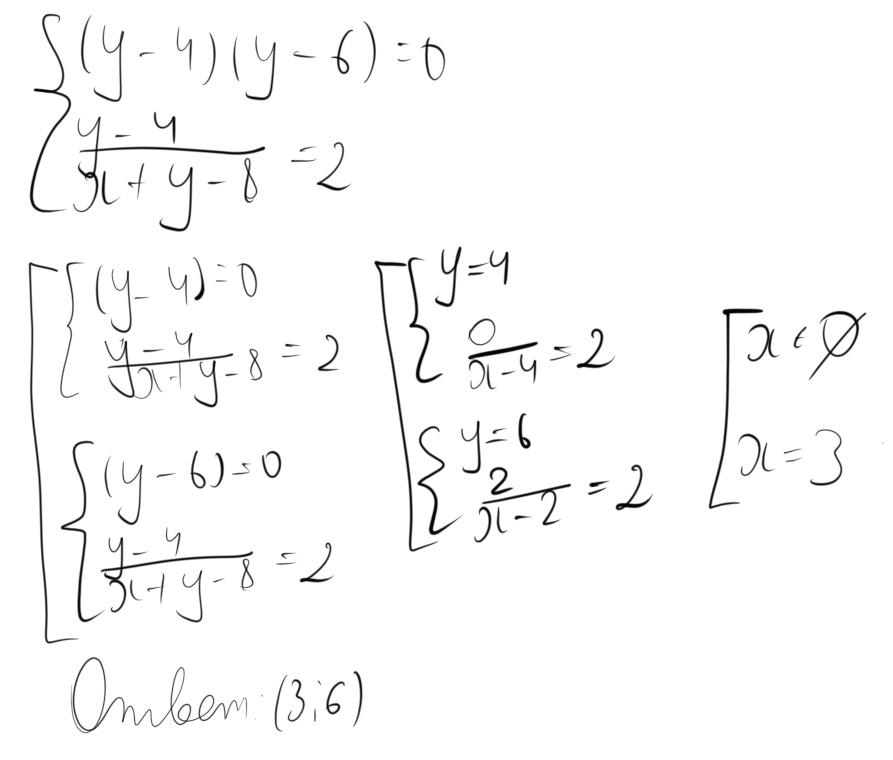 { (y-4)(y-6)=0
{ (y-4)/(x+y-8) =2
[ { (y-4)=0
{ (y-4)/(x+y-8) =2
{ (y-6)=0
{ (y-4)/(x+y-8) =2
[ { y=4
{ 0/(x-4) =2
{ y=6
{ 2/(x-2) =2
[ x ∈ ∅
x=3
Ответ: (3;6)